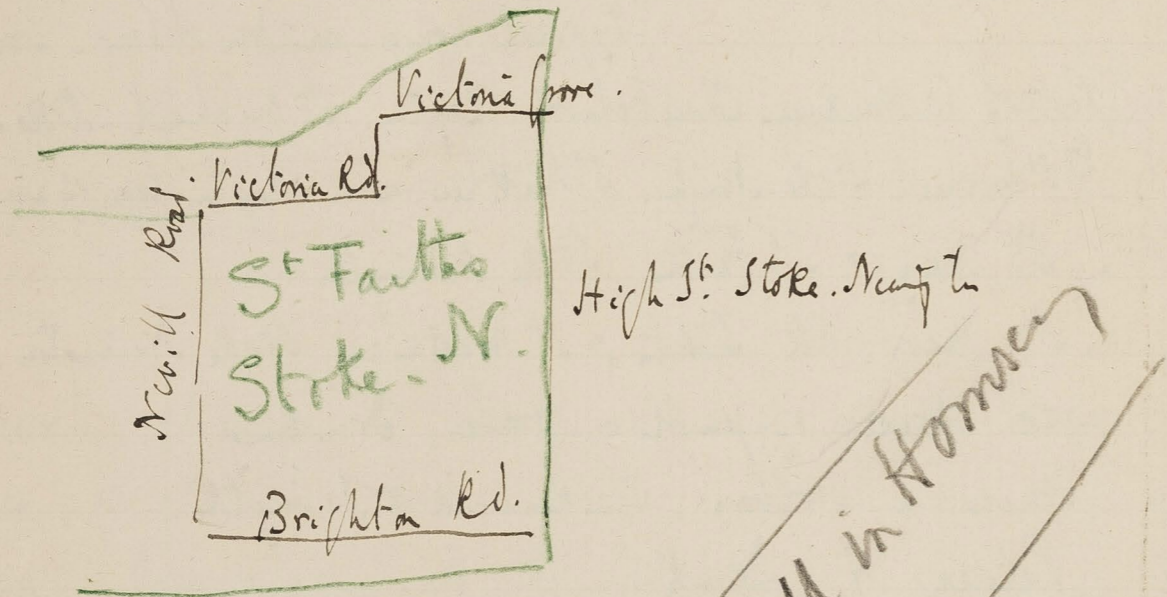 Victoria Grove.
Victoria Rd.
Nevill Road.
St Faiths
Stoke. N.
High St. Stoke. Newington
Brighton Rd.
in Hornsey